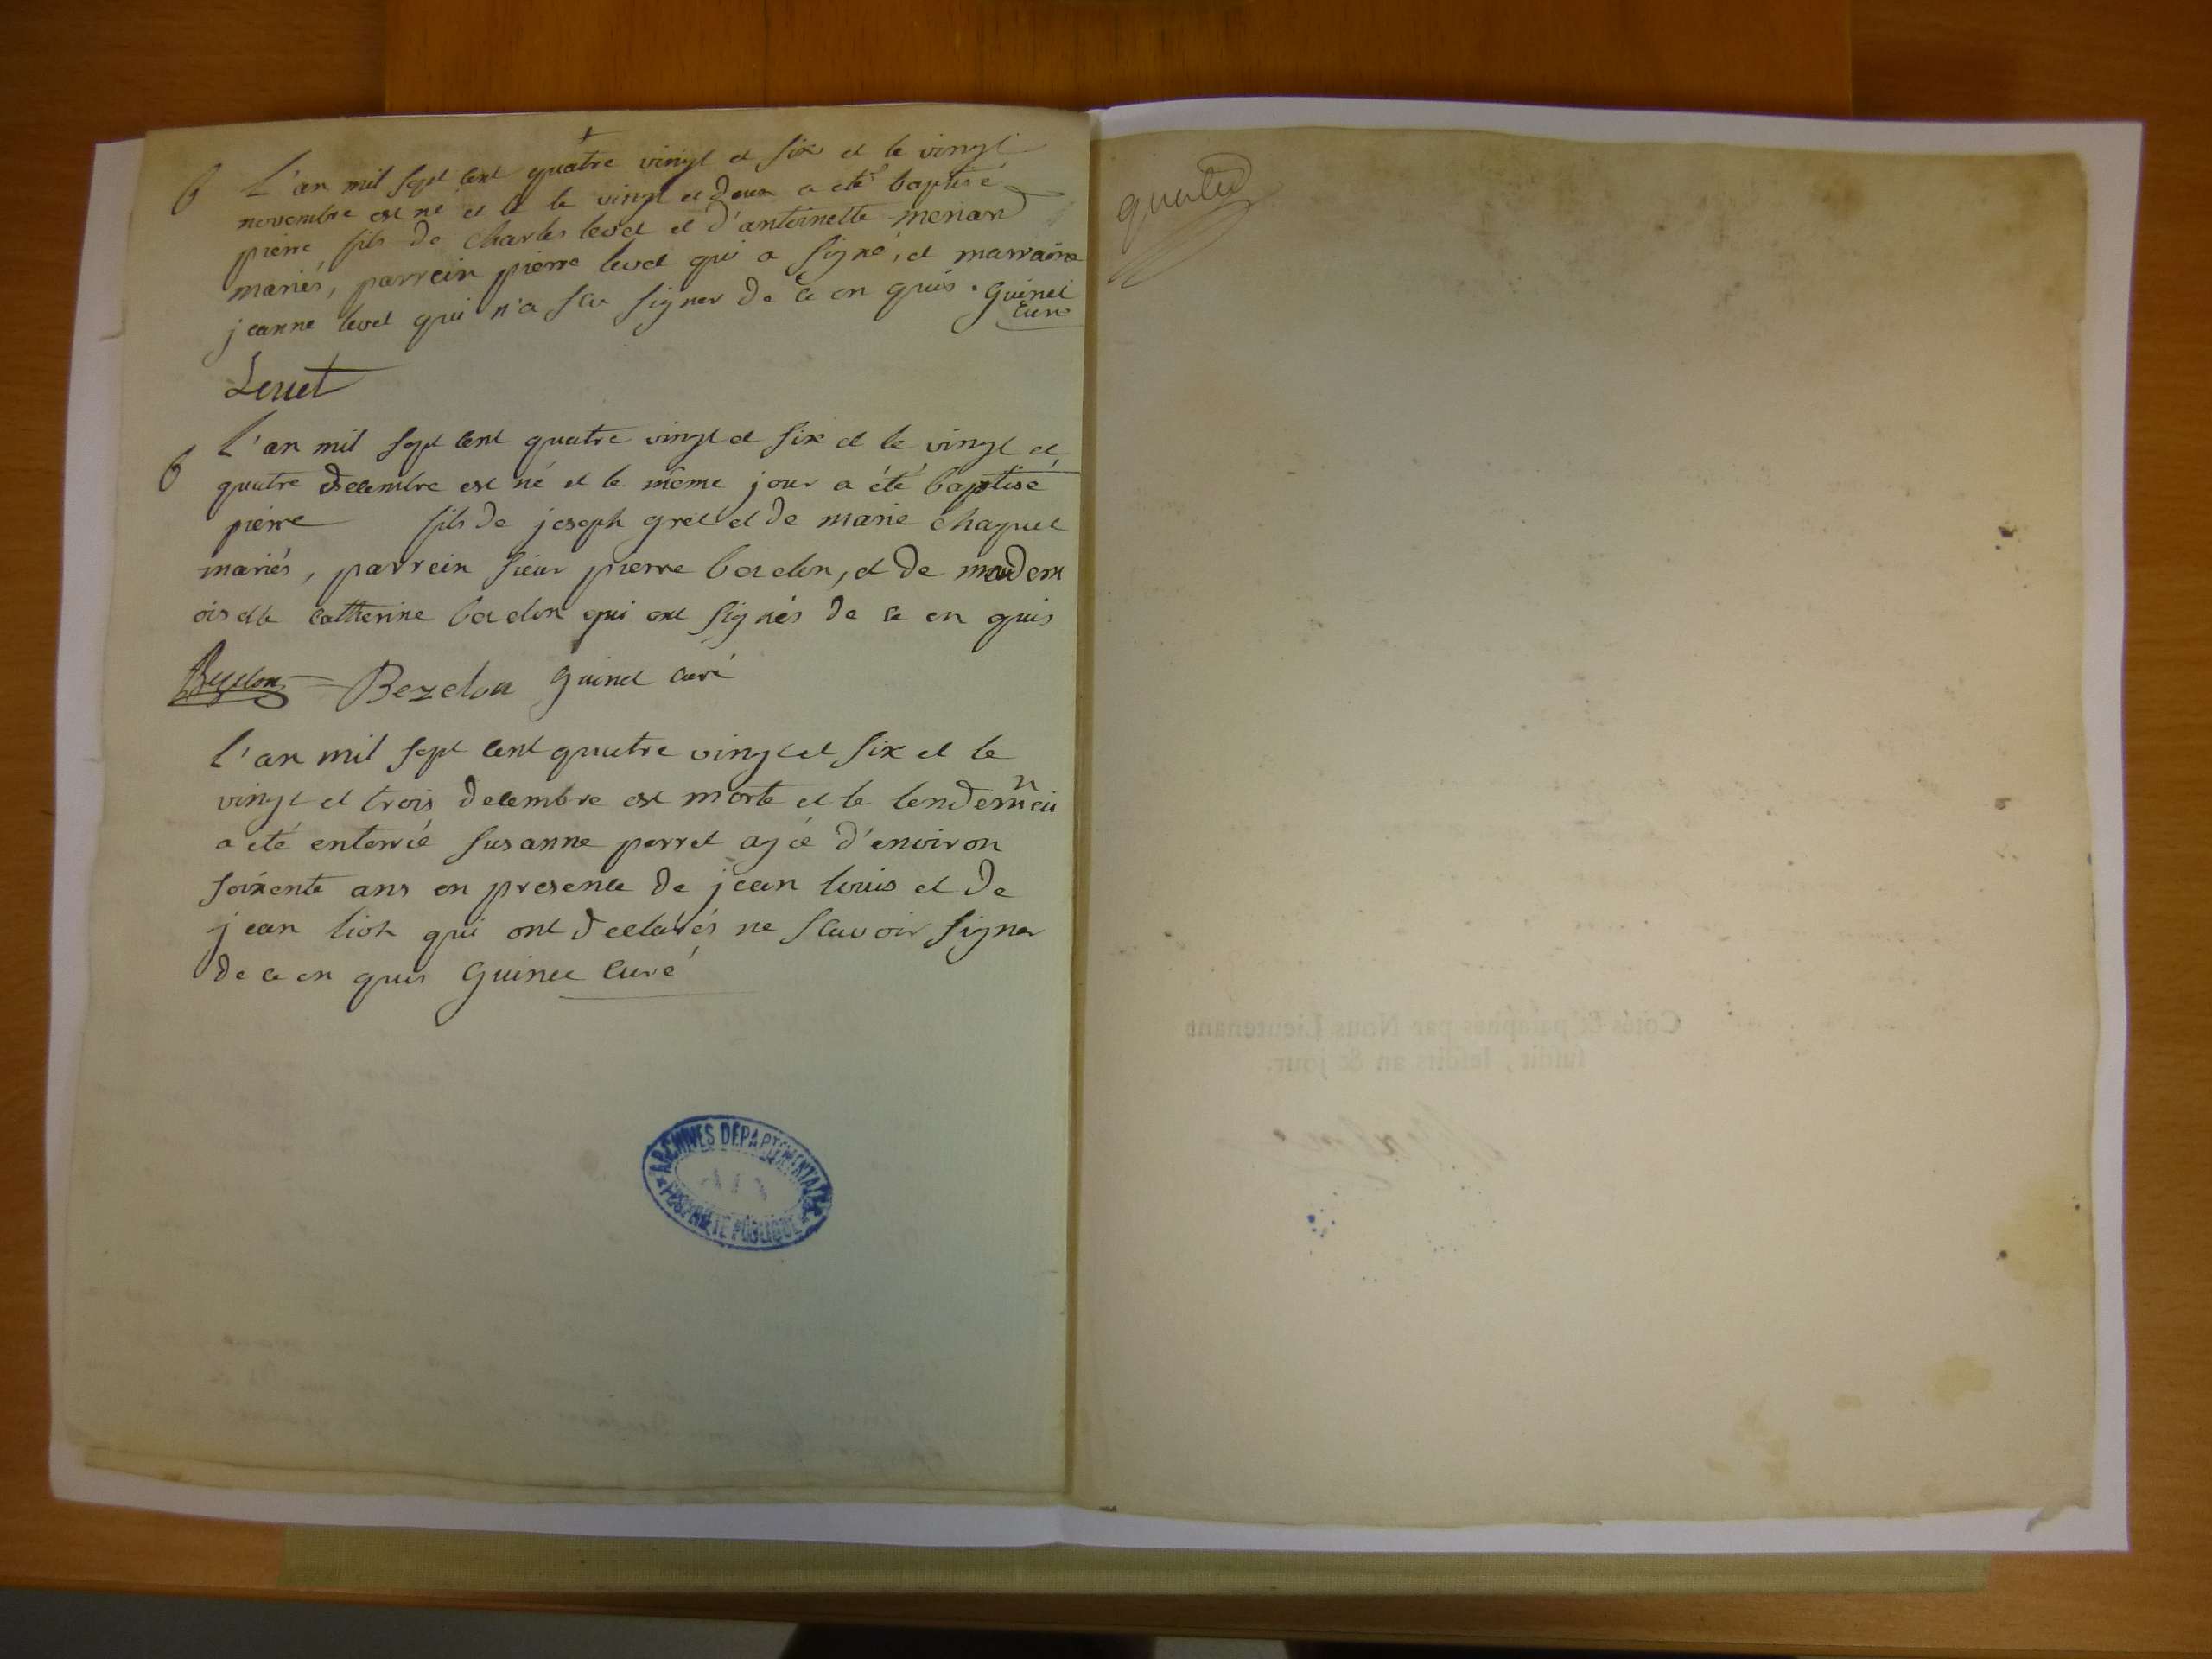 B L'an mil sept cent quatre vingt et six et le vingt
novembre est né et le le vingt et deux a eté baptisé
pierre, fils de charles levet et d'antoinette meriand
mariés, parrein pierre levet qui a signé, et marraine
jeanne levet qui n'a scu signer de ce en quis. Guinet
curé
Levet
B L'an mil sept cent quatre vingt et six et le vingt et
quatre decembre est né et le même jour a été baptisé
pierre fils de joseph gret et de marie chapuet
mariés, parrein sieur pierre, et de madem
oiselle catherine qui ont signés de ce en quis
Bezelon Guinet curé
l'an mil sept cent quatre vingt et six et le
vingt et trois decembre est morte et le lendemein
a eté enterrié susanne perret agée d'environ
soixente ans en presence de jean louis et de
jean qui ont declarés ne scavoir signer
de ce en quis Guinet curé
ARCHIVES DÉPARTEMENTALES
AIN
PROPRIÉTÉ PUBLIQUE
Cotés & paraphés par Nous Lieutenant
susdit, lesdits an & jour.